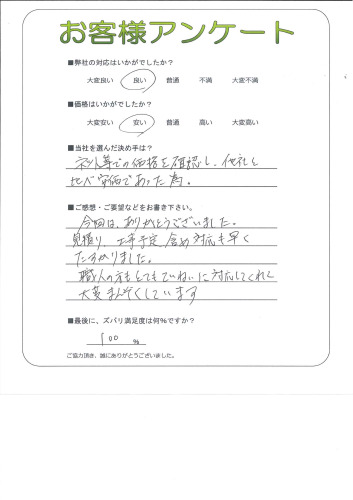 お客様アンケート
■弊社の対応はいかがでしたか？
大変良い 良い 普通 不満 大変不満
■価格はいかがでしたか？
大変安い 安い 普通 高い 大変高い
■当社を選んだ決め手は？
ネット等での価格を確認し、他社と
比べ安価であった為。
■ご感想・ご要望などをお書き下さい。
今回は、ありがとうございました。
見積り、工事予定、含め対応も早く
たすかりました。
職人の方もとてもていねいに対応してくれて
大変まんぞくしています
■最後に、ズバリ満足度は何％ですか？
100 ％
ご協力頂き、誠にありがとうございました。